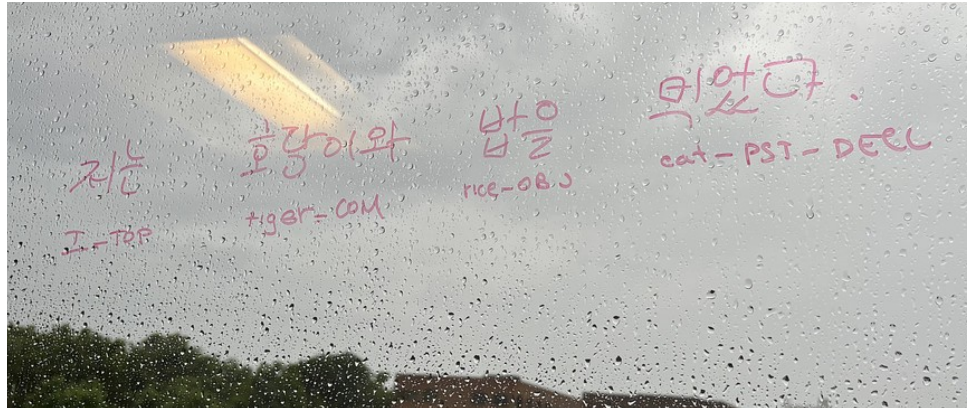 저는 호랑이와 밥을 먹었다.
I-TOP tiger-COM rice-OBJ eat-PST-DECL